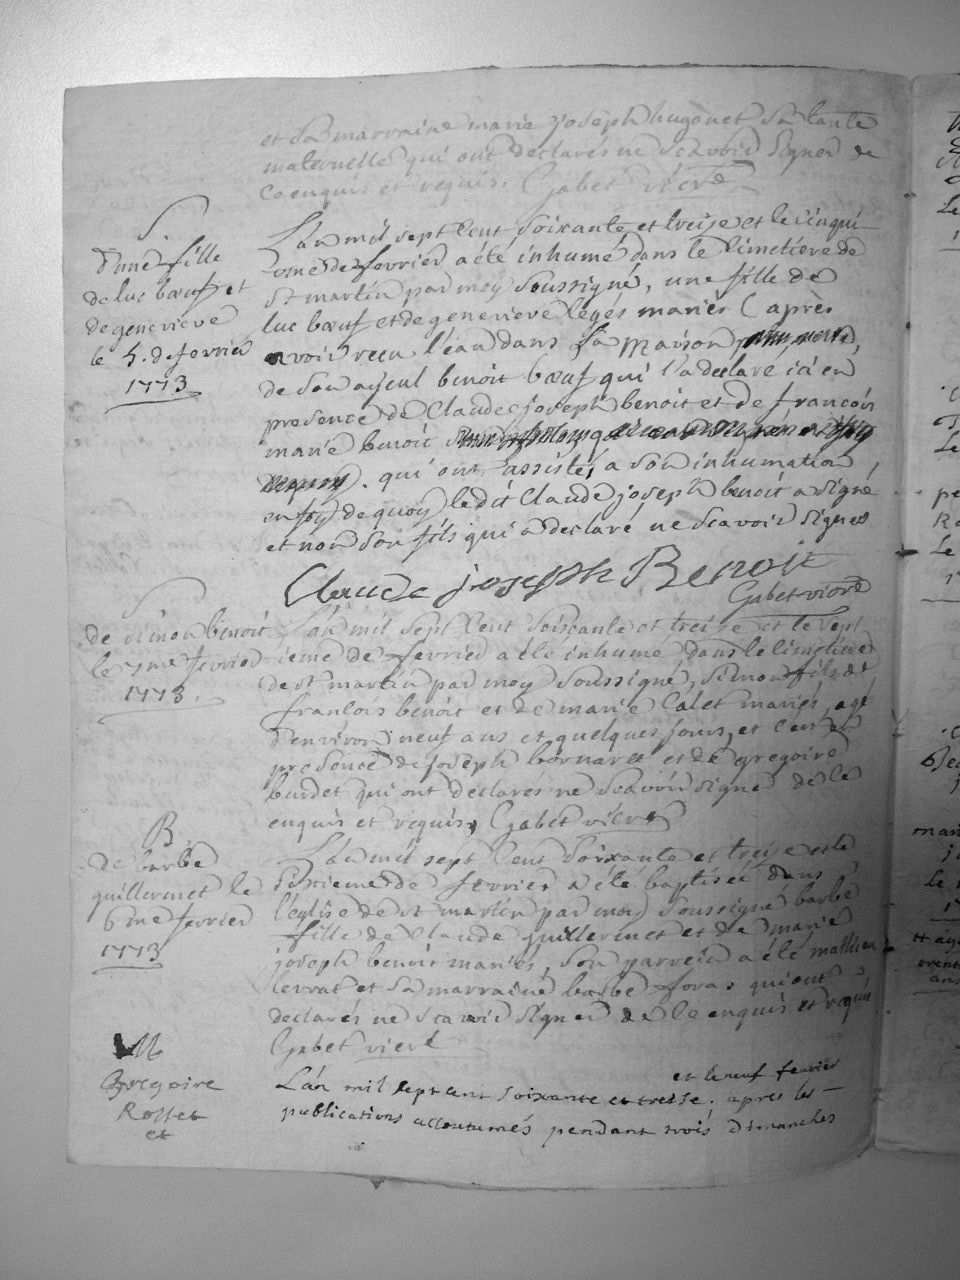 et sa marraine marie joseph hugonet sa tante
maternelle qui ont declarés ne scavoir signer de
ce enquis et requis. Gabet vicre
S.
d'une fille
de luc bœuf et
de genevieve
le 5. de fevrier
1773
L'an mil sept cent soixante et treize et le cinqui-
eme de fevrier a été inhumé dans le cimetiere de
st martin par moy soussigné, une fille de
luc bœuf et de genevieve legés mariés (après
avoir recu l'eau dans la maison
de son ayeul benoit bœuf qui l'a declaré ici en
presence de Claude joseph benoit et de francois
marie benoit
. qui ont assistés a son inhumation,
en foy de quoy ledit Claude joseph benoit a signé
et non son fils qui a declaré ne scavoir signer
Claude joseph Benoit
Gabet vicre
S
de simon benoit
le 7me fevrier
1773.
L'an mil sept cent soixante et treize et le sept
ieme de fevrier a été inhumé dans le cimetiere
de st martin par moy soussigné, simon fils de
francois benoit et de marie Calet mariés, agé
d'environ neuf ans et quelques jours, et c'est en
presence de joseph et de gregoire
burdet qui ont declarés ne scavoir signer de ce
enquis et requis, Gabet vicre
B
de barbe
guillermet le
6me fevrier
1773
L'an mil sept cent soixante et treize et le
sixieme de fevrier a été baptisée dans
l'église de st martin par moy soussigné barbe
fille de claude guillermet et de marie
joseph benoit mariés, son parrein a été mathieu
levrat et sa marraine barbe foras qui ont
declarés ne scavoir signer de ce enquis et requis
Gabet vicre
M
Gregoire
Rosset
et
et le neuf fevrier
L'an mil sept cent soixante et tresse. apres les
publications accoutumés pendant trois dimanches